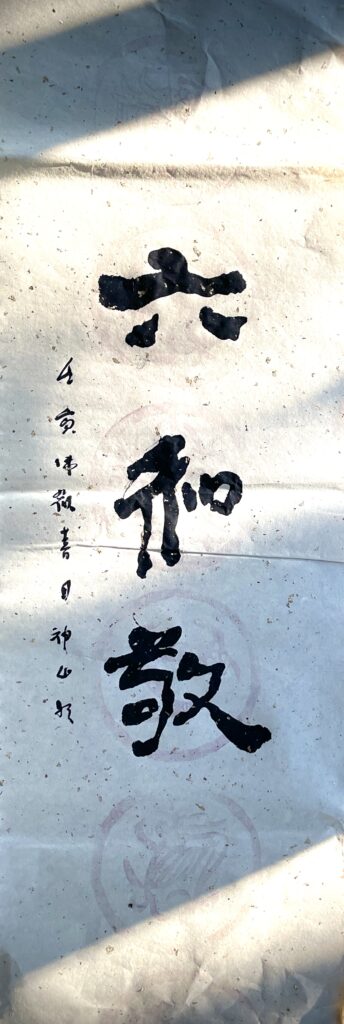 六和敬
壬寅佛歡喜日神山